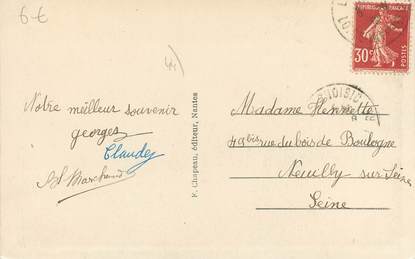 6-€
Notre meilleur souvenir
georges
Claude
F. Chapeau, éditeur, Nantes
REPUBLIQUE FRANÇAISE
30c
POSTES
Madame Hennette
49 bis rue du bois de Boulogne
Neuilly sur Seine
Seine